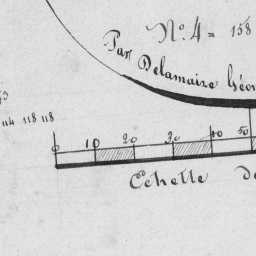 N.º 4 = 158
Par Delamaire Géom
114 118 118
0 10 20 30 40 50
Echelle de